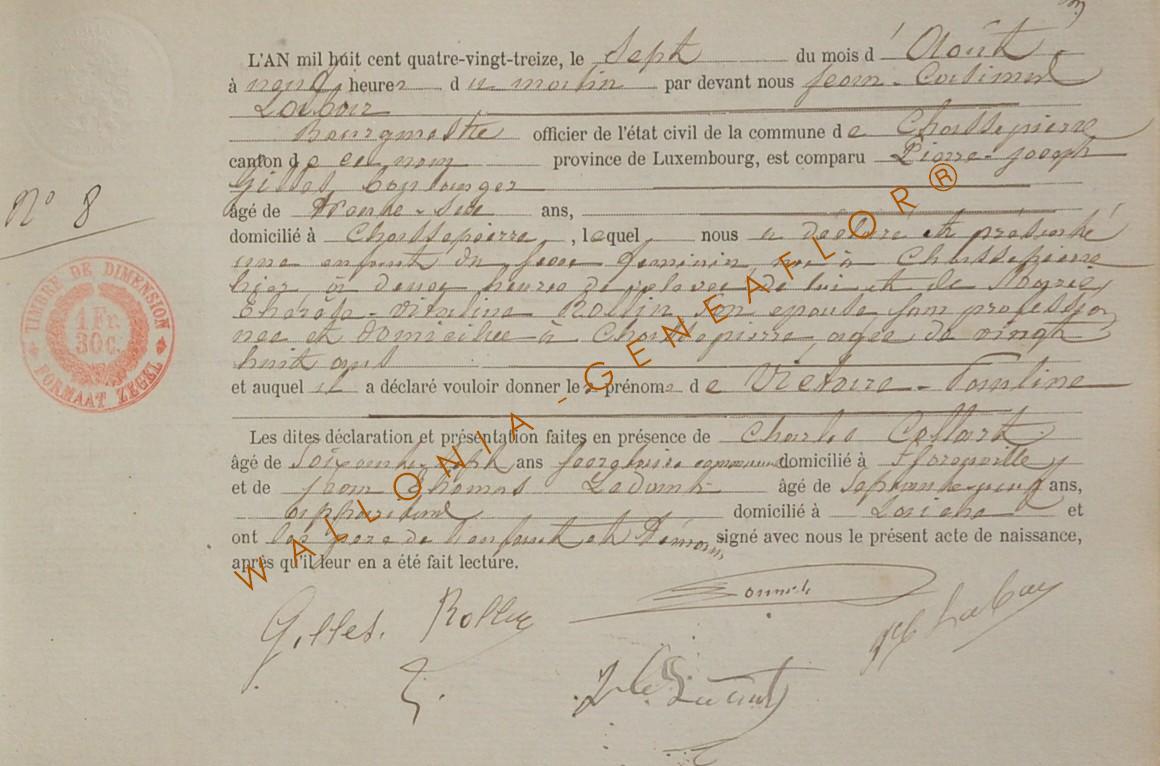 L'AN mil huit cent quatre-vingt-treize, le sept du mois d'Août
à neuf heures du matin par devant nous Jean-Casimir
bourgmestre officier de l'état civil de la commune de Chassepierre
canton de ce nom province de Luxembourg, est comparu Pierre-Joseph
Gilles, boulanger
âgé de Trente-six ans,
domicilié à Chassepierre, lequel nous a déclaré et présenté
une enfant du sexe féminin née à Chassepierre
hier à douze heures de relevée de lui et de Marie
Thérèse-Vitaline Rollin son épouse sans profession
née et domiciliée à Chassepierre agée de vingt
huit ans
et auquel il a déclaré vouloir donner les prénoms de Victoire-Pauline
Les dites déclaration et présentation faites en présence de Charles Collart
âgé de Soixante-sept ans domicilié à Florenville
et de Jean Thomas âgé de ans,
domicilié à et
ont les père de l'enfant et témoins signé avec nous le présent acte de naissance,
après qu'il leur en a été fait lecture.
Gilles.
N° 8
TIMBRE DE DIMENSION
1 Fr.
30 C.
FORMAAT ZEGEL
WALLONIA - GENEAFLOR ®